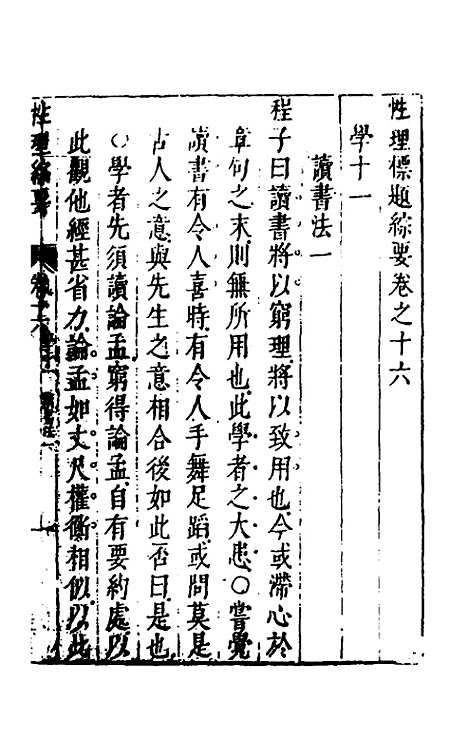 性理標題綜要卷之十六
學十一
讀書法一
程子曰讀書將以窮理將以致用也今或滯心於
章句之末則無所用也此學者之大患〇嘗覺
讀書有令人喜時有令人手舞足蹈或問莫是
古人之意與先生之意相合後如此否曰是也
〇學者先須讀論孟窮得論孟自有要約處以
此觀他經甚省力論孟如丈尺權衡相似以此
性理綜要 卷十六